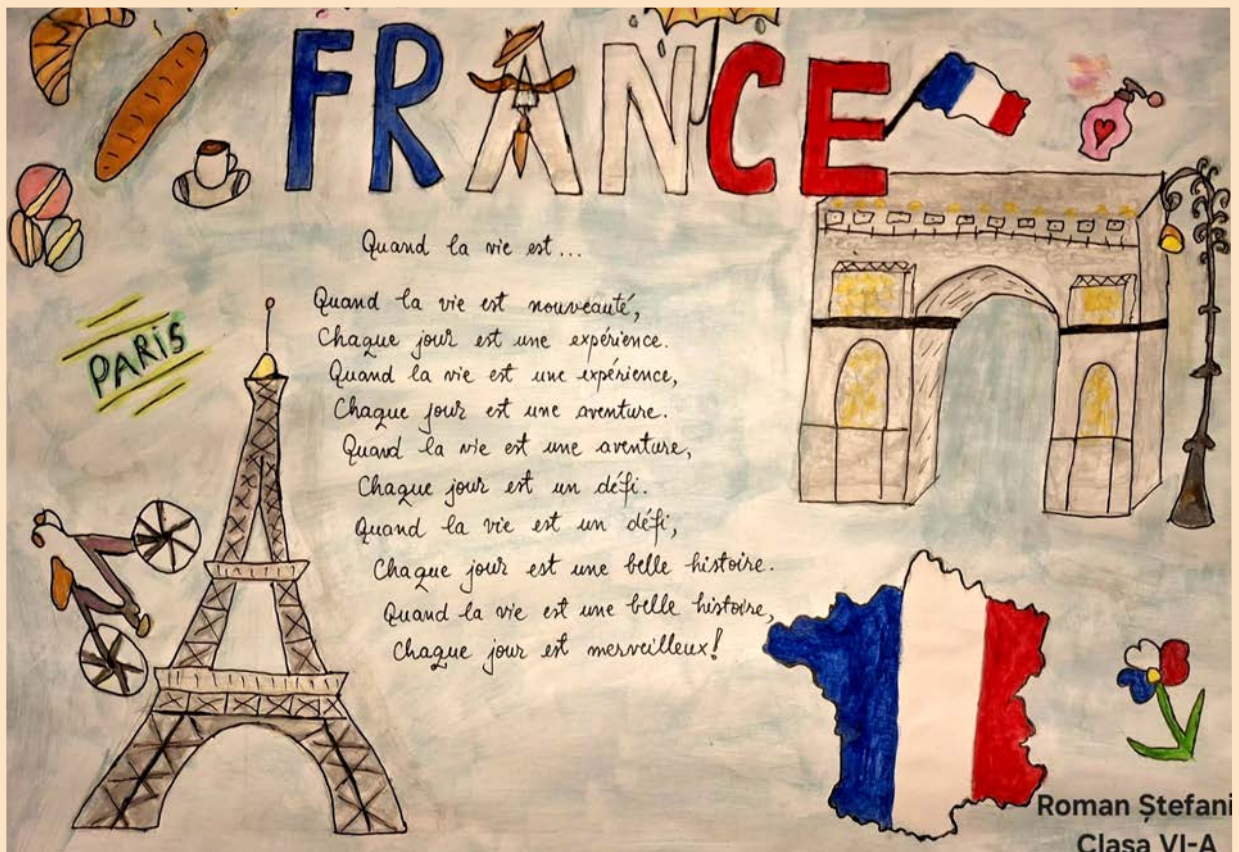 FRANCE
PARIS
Quand la vie est...
Quand la vie est nouveauté,
Chaque jour est une expérience.
Quand la vie est une expérience,
Chaque jour est une aventure.
Quand la vie est une aventure,
Chaque jour est un défi.
Quand la vie est un défi,
Chaque jour est une belle histoire.
Quand la vie est une belle histoire,
Chaque jour est merveilleux!
Roman Ștefani
Clasa VI-A